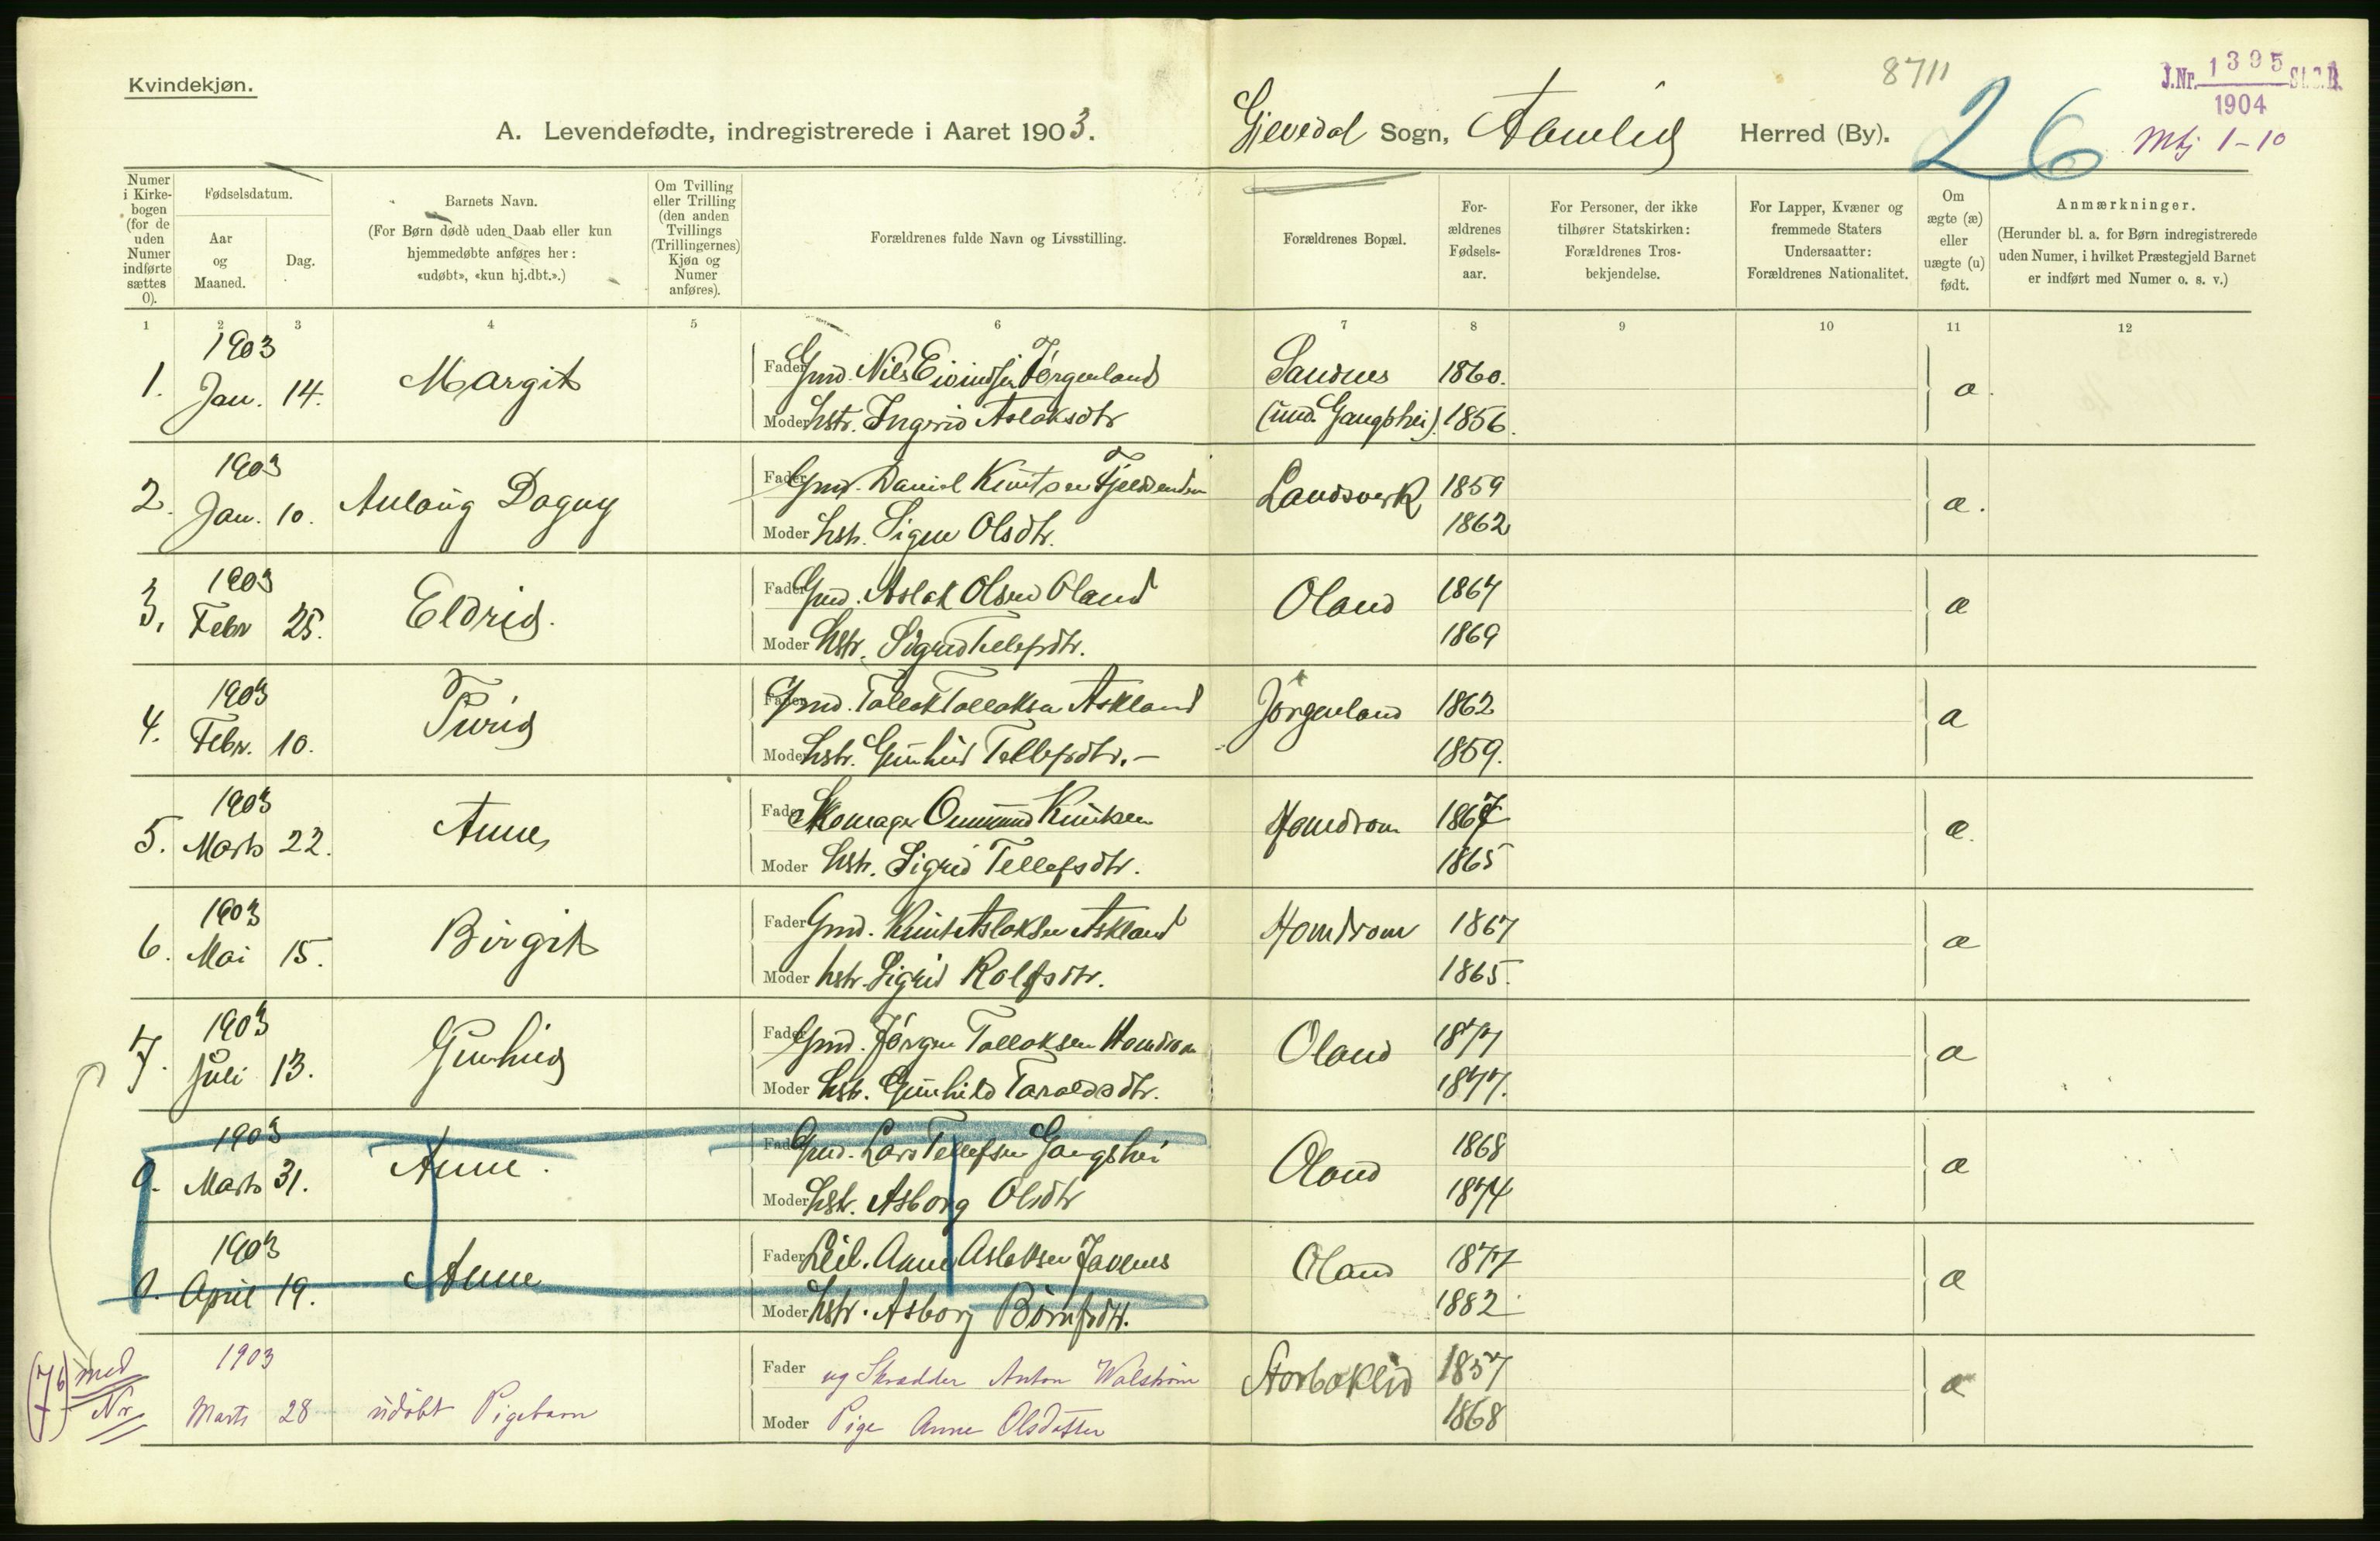 Kvindekjøn.
8711
J.Nr. 1395 St.C.B.
1904
26
Mkj 1-10
A. Levendefødte, indregistrerede i Aaret 1903.
Gjevedal Sogn, Aamlid Herred (By).
Numer i Kirkebogen (for de uden Numer indførte sættes 0).
Fødselsdatum.
Aar og Maaned.
Dag.
Barnets Navn.
(For Børn døde uden Daab eller kun hjemmedøbte anføres her: «udøbt», «kun hj.dbt.».)
Om Tvilling eller Trilling (den anden Tvillings (Trillingernes) Kjøn og Numer anføres).
Forældrenes fulde Navn og Livsstilling.
Forældrenes Bopæl.
For-ældrenes Fødsels-aar.
For Personer, der ikke tilhører Statskirken: Forældrenes Tros-bekjendelse.
For Lapper, Kvæner og fremmede Staters Undersaatter: Forældrenes Nationalitet.
Om ægte (æ) eller uægte (u) født.
Anmærkninger.
(Herunder bl. a. for Børn indregistrerede uden Numer, i hvilket Præstegjeld Barnet er indført med Numer o. s. v.)
1 2 3 4 5 6 7 8 9 10 11 12
1903
1. Jan. 14. Margit Fader Gmd. Nils Eivindsen Jørgenland Sandnes 1860. æ.
Moder hstr. Ingerid Aslaksdtr (und. Gangshei). 1856.
1903
2. Jan. 10. Aulaug Dagny Fader Gmd. Daniel Knutsen Landsverk 1859 æ.
Moder hstr. Signe Olsdtr. 1862
1903
3. Febr 25. Eldrid. Fader Gmd. Aslak Olsen Oland Oland 1867 æ
Moder hstr. Sigrid Tellefsdtr. 1869
1903
4. Febr. 10. Turid Fader Gmd. Tallak Tallaksen Askland Jørgenland 1862 æ
Moder hstr. Gunhild Tellefsdtr. – 1859.
1903
5. Marts 22. Anne Fader Skomager Ommund Knutsen Homdrom 1867 æ.
Moder hstr. Sigrid Tellefsdtr. 1865
1903
6. Mai 15. Birgit Fader Gmd. Knut Aslaksen Askland Homdrom 1867 æ
Moder hstr. Sigrid Rolfsdtr. 1865.
1903
7. Juli 13. Gunhild Fader Gmd. Jörgen Tallaksen Homdrom Oland 1877 æ
Moder hstr. Gunhild Taraldsdtr. 1877.
1903
0. Marts 31. Anne. Fader Gmd. Lars Tellefsen Gangshei Oland 1868 æ
Moder hstr. Asborg Olsdtr 1874
1903
0. April 19. Anne Fader Leil. Aslaksen Oland 1877 æ
Moder hstr. Asborg 1882
1903
(7b) med Nr. Marts 28 udøbt Pigebarn Fader ug Skrædder Anton Walstrøm Storboklid 1857 æ
Moder Pige Anne Olsdatter 1868